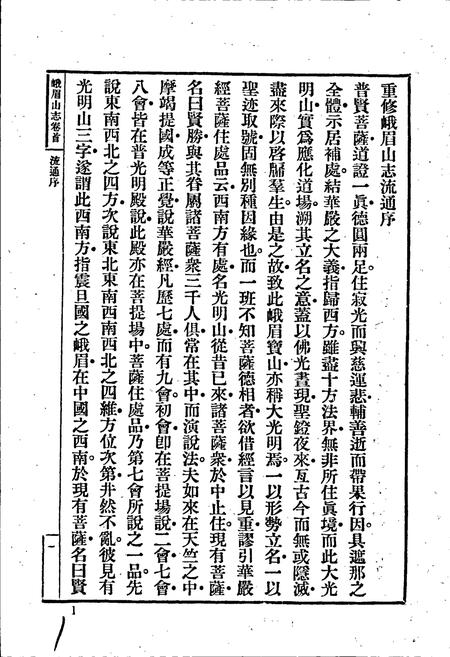 重修峨眉山志流通序
普賢菩薩道證一眞德圓兩足住寂光而興慈運悲輔善逝而帶果行因具遮那之
全體示居補處結華嚴之大義指歸西方雖盡十方法界無非所住眞境而此大光
明山實爲應化道場溯其立名之意蓋以佛光晝現聖燈夜來亙古今而無或隱滅
盡來際以啓牖羣生由是之故致此峨眉寶山亦稱大光明焉一以形勢立名一以
聖迹取號固無別種因緣也而一班不知菩薩德相者欲借經言以見重謬引華嚴
經菩薩住處品云西南方有處名光明山從昔已來諸菩薩衆於中止住現有菩薩
名曰賢勝與其眷屬諸菩薩衆三千人俱常在其中而演說法夫如來在天竺之中
摩竭提國成等正覺說華嚴經凡歷七處而有九會初會卽在菩提場說二會七會
八會皆在普光明殿說此殿亦在菩提場中菩薩住處品乃第七會所說之一品先
說東南西北之四方次說東北東南西南西北之四維方位次第井然不亂彼見有
光明山三字遂謂此西南方指震旦國之峨眉在中國之西南於現有菩薩名曰賢
峨眉山志卷首
流通序
一
1